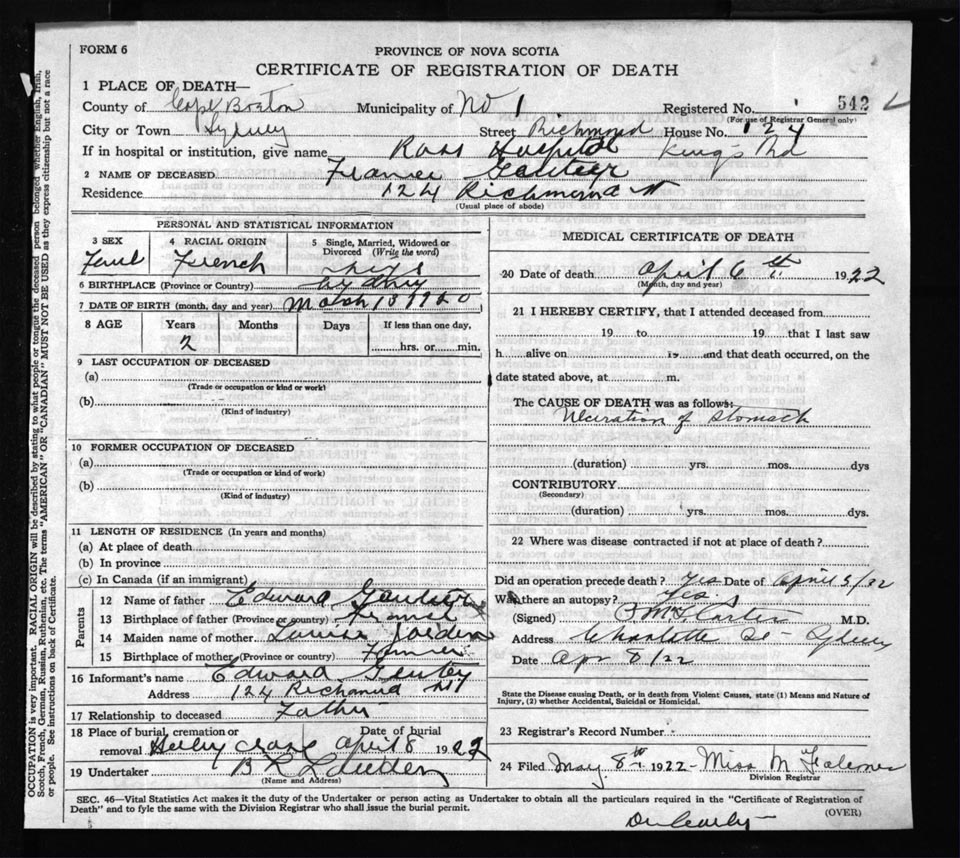 FORM 6
PROVINCE OF NOVA SCOTIA
CERTIFICATE OF REGISTRATION OF DEATH
1 PLACE OF DEATH—
County of Cape Breton Municipality of No 1 Registered No. 542
(For use of Registrar General only)
City or Town Sydney Street Richmond House No. 124
If in hospital or institution, give name Ross Hospital King's Rd
2 NAME OF DECEASED
Residence 124 Richmond St
(Usual place of abode)
PERSONAL AND STATISTICAL INFORMATION
3 SEX 4 RACIAL ORIGIN 5 Single, Married, Widowed or Divorced (Write the word)
French
6 BIRTHPLACE (Province or Country) Sydney
7 DATE OF BIRTH (month, day and year) March 13 1920
8 AGE Years Months Days If less than one day,
2 hrs. or min.
9 LAST OCCUPATION OF DECEASED
(a)
(Trade or occupation or kind or work)
(b)
(Kind of industry)
10 FORMER OCCUPATION OF DECEASED
(a)
(Trade or occupation or kind of work)
(b)
(Kind of industry)
11 LENGTH OF RESIDENCE (In years and months)
(a) At place of death
(b) In province
(c) In Canada (if an immigrant)
Parents
12 Name of father Edward
13 Birthplace of father (Province or country) France
14 Maiden name of mother Louise
15 Birthplace of mother (Province or country)
16 Informant's name Edward
Address 124 Richmond St
17 Relationship to deceased Father
18 Place of burial, cremation or Date of burial
removal Holy Cross April 8 1922
19 Undertaker
(Name and Address)
MEDICAL CERTIFICATE OF DEATH
20 Date of death April 6th 1922
(Month, day and year)
21 I HEREBY CERTIFY, that I attended deceased from
19 to 19 that I last saw
h alive on 19 and that death occurred, on the
date stated above, at m.
The CAUSE OF DEATH was as follows:
Ulceration of stomach
(duration) yrs. mos. dys
CONTRIBUTORY
(Secondary)
(duration) yrs. mos. dys.
22 Where was disease contracted if not at place of death?
Did an operation precede death? Yes Date of April 5/22
Was there an autopsy? Yes
(Signed) M.D.
Address Charlotte St - Sydney
Date Apr 8/22
State the Disease causing Death, or in death from Violent Causes, state (1) Means and Nature of
Injury, (2) whether Accidental, Suicidal or Homicidal.
23 Registrar's Record Number
24 Filed May 8th 1922 Miss M
Division Registrar
SEC. 46—Vital Statistics Act makes it the duty of the Undertaker or person acting as Undertaker to obtain all the particulars required in the "Certificate of Registration of
Death" and to fyle the same with the Division Registrar who shall issue the burial permit.
(OVER)
OCCUPATION is very important. RACIAL ORIGIN will be described by stating to what people or tongue the deceased person belonged whether English, Irish,
Scotch, French, German, Russian, Ruthenian, etc. The terms "AMERICAN" OR "CANADIAN" MUST NOT BE USED as they express citizenship but not a race
or people. See instructions on back of Certificate.